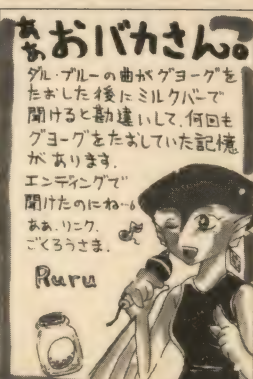 ああおバカさん。
ダル・ブルーの曲がグヨーグを
たおした後にミルクバーで
聞けると勘違いして、何回も
グヨーグをたおしていた記憶
があります。
エンディングで
聞けたのにね…
ああ、リンク。
ごくろうさま。
Ruru